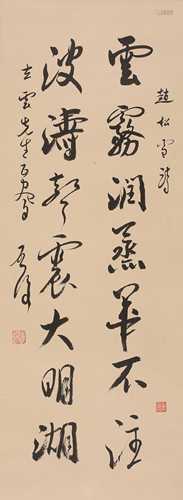 趙松雪詩
雲霧潤蒸華不注
波濤聲震大明湖
立雲先生百齡